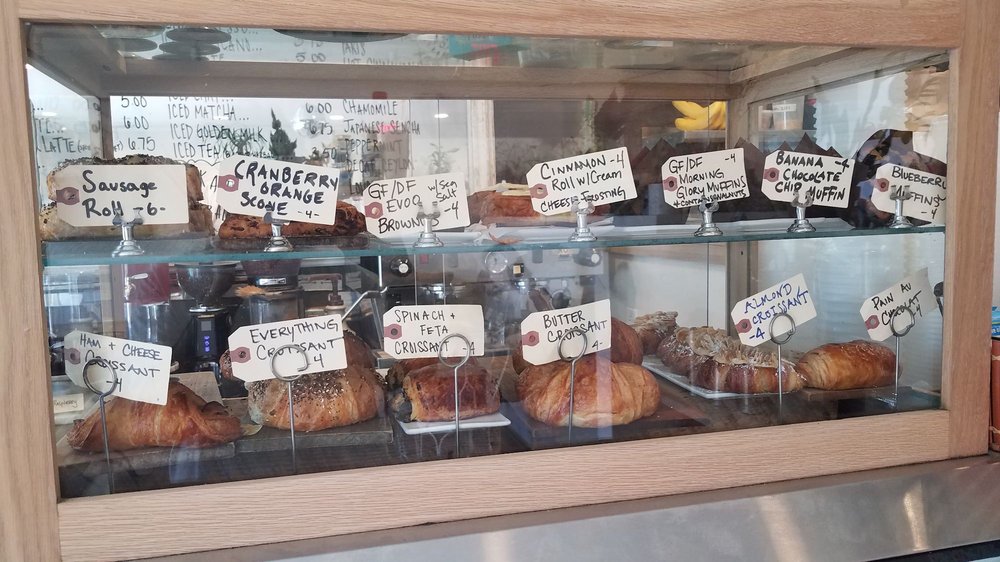 5.00
5.00
ICED MATCHA...
ICED GOLDEN MILK
6.75
LATTE
6.00
CHAMOMILE
6.75
JAPANESE SENCHA
PEPPERMINT
Sausage
Roll -6-
CRANBERRY
ORANGE
SCONE -4-
GF/DF w/SEA
EVOO SALT
BROWNIE -4-
CINNAMON -4
ROLL W/CREAM
CHEESE FROSTING
GF/DF -4
MORNING
GLORY MUFFINS
*CONTAINS WALNUTS*
BANANA -4-
CHOCOLATE
CHIP MUFFIN
BLUEBERRY
MUFFINS -4-
HAM + CHEESE
CROISSANT
-4
EVERYTHING
CROISSANT
-4
SPINACH +
FETA
CROISSANT -4
BUTTER
CROISSANT
4-
ALMOND
CROISSANT
-4-
PAIN AU
CHOCOLAT
4